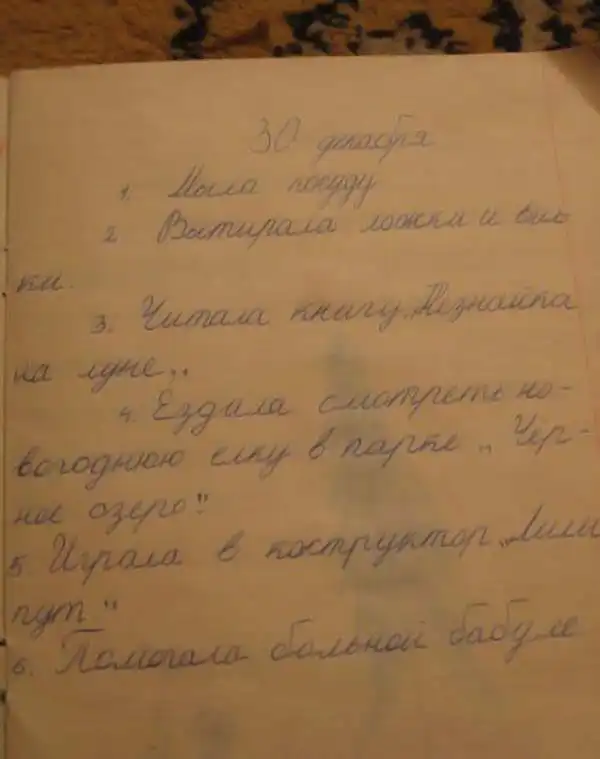 30 декабря
1. Мыла посуду
2. Вытирала ложки и вил-
ки.
3. Читала книгу „Незнайка
на луне„.
4. Ездала смотреть но-
вогоднюю елку в парке „Чёр-
ное озеро"
5. Играла в коструктор „Лили
пут"
6. Помогала больной бабуле